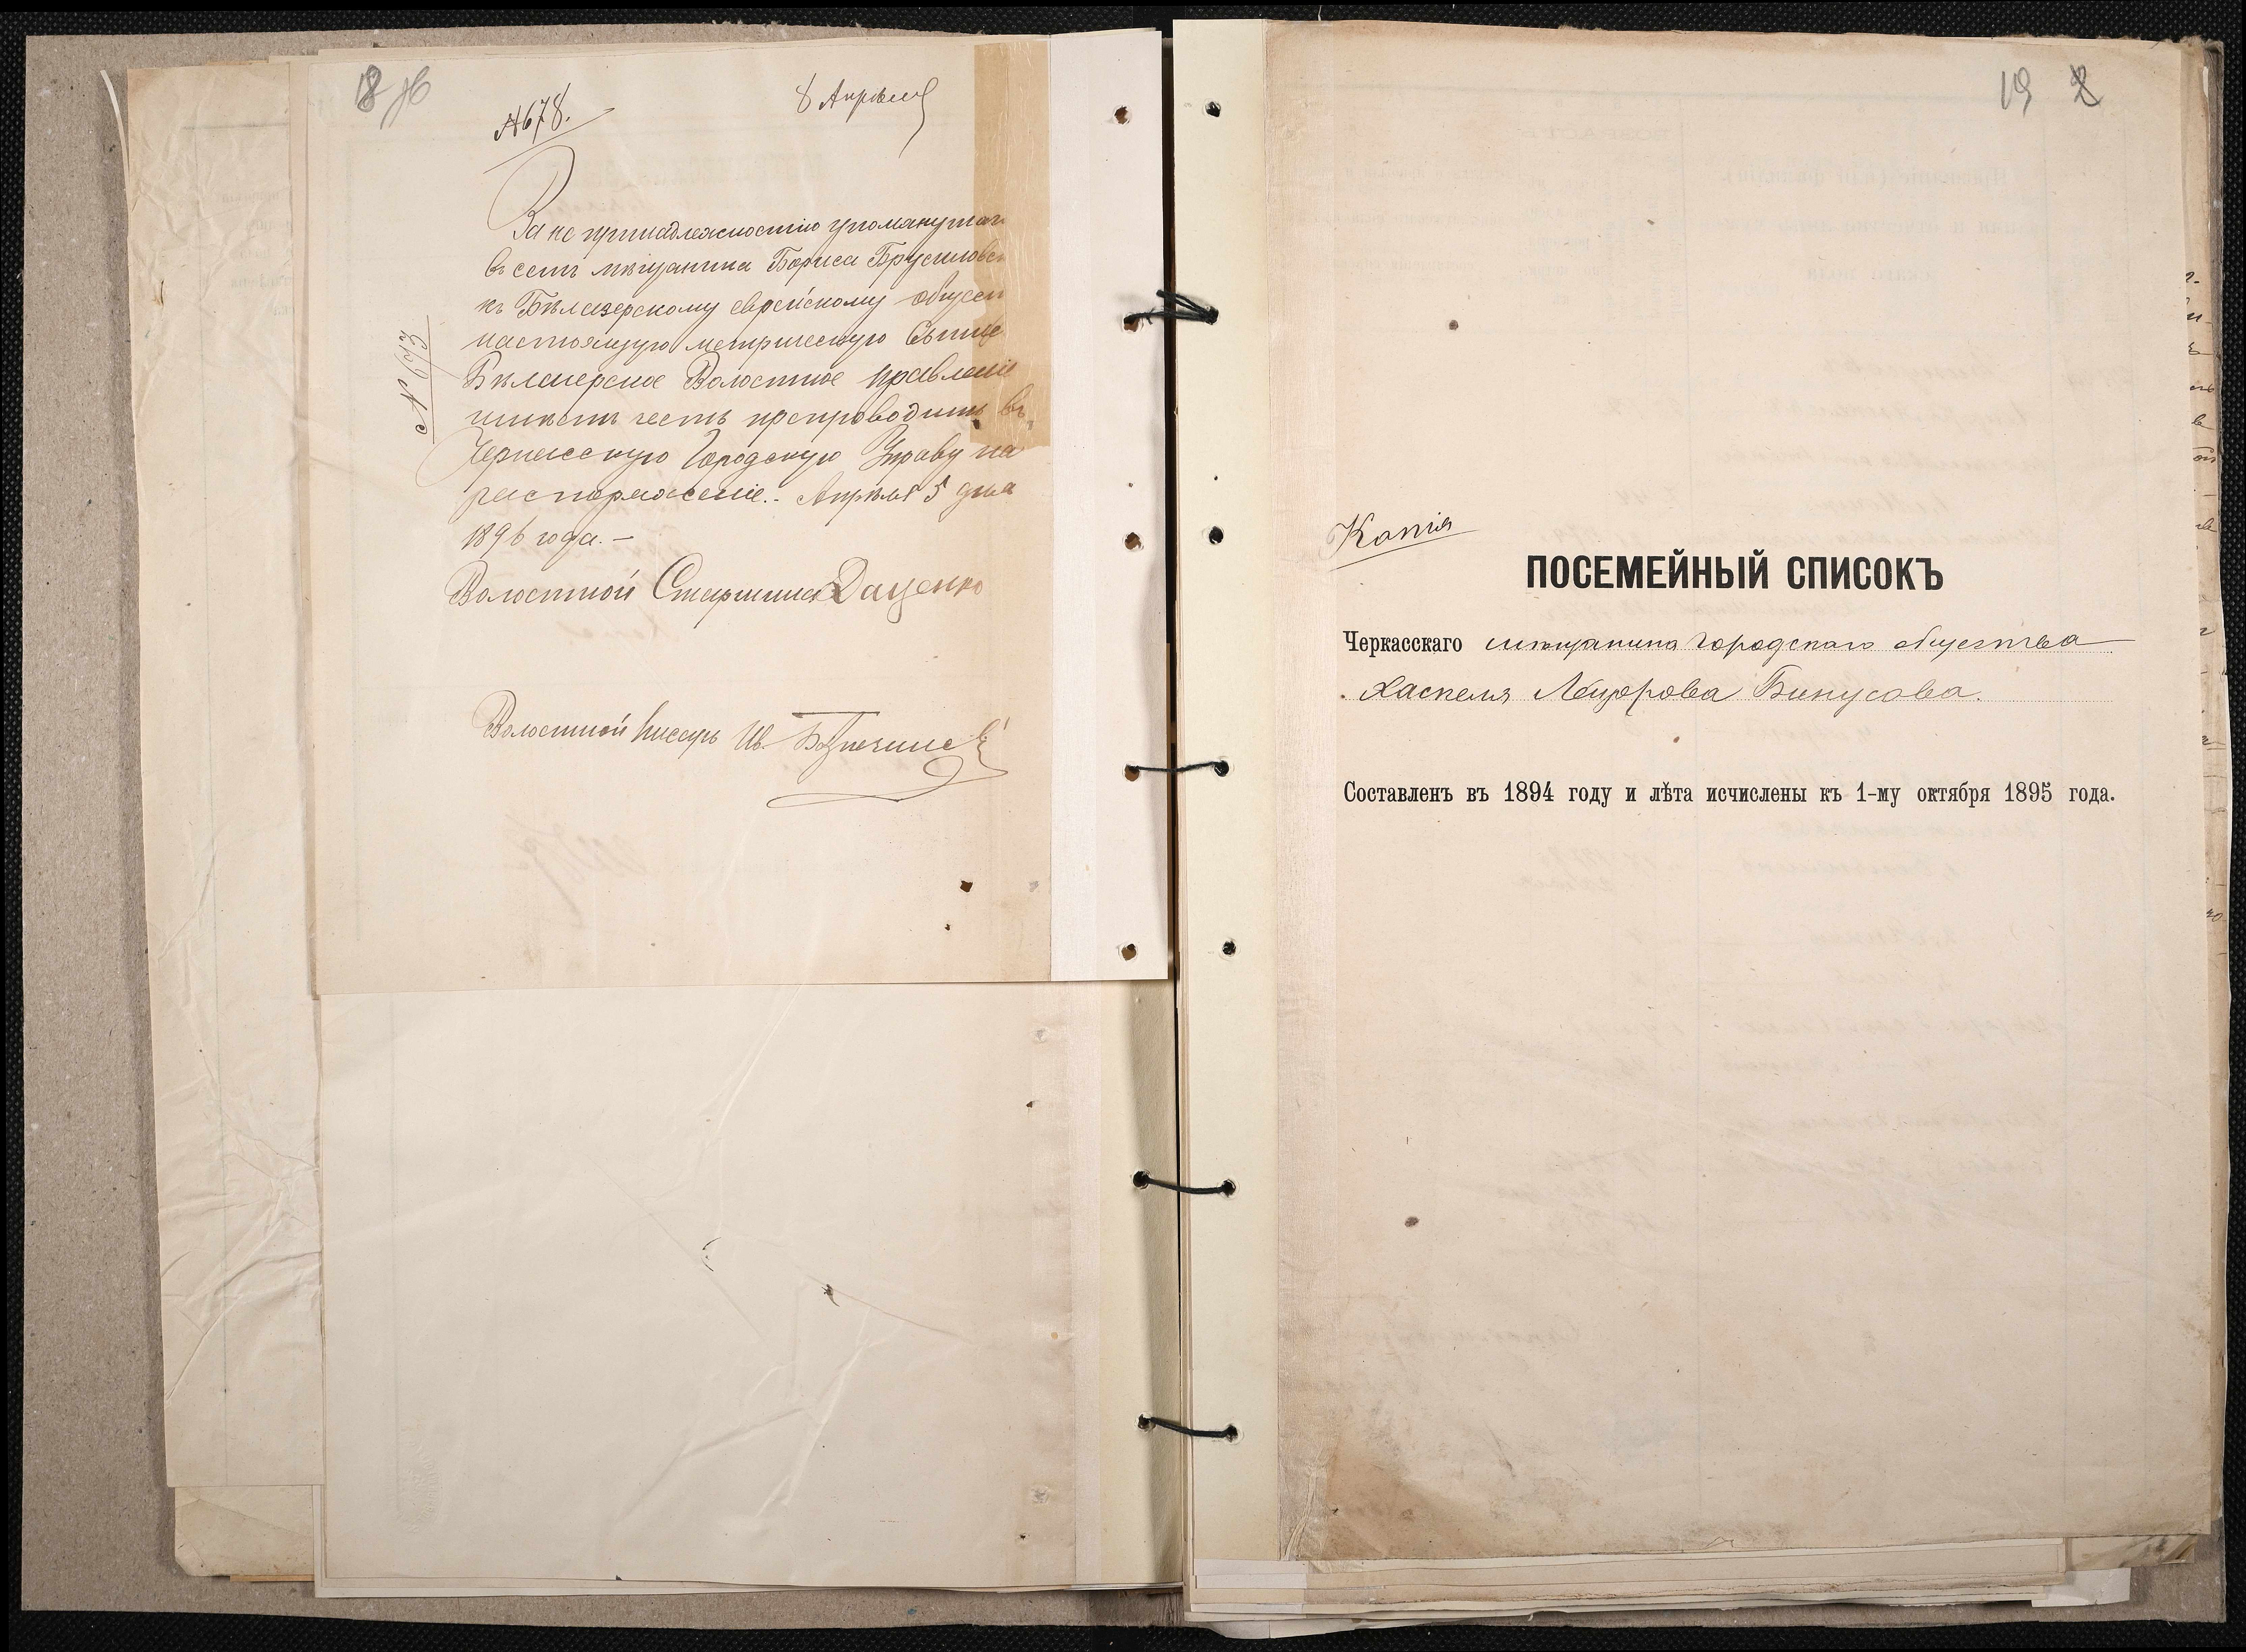 18
№ 678.
8 Апрѣля
За не принадлежностію упомянутаго
въ семъ мѣщанина Бориса Брусиловск
къ Бѣлозерскому еврейскому общест
настоящую метрическую выписъ
Бѣлозерское Волостное Правленіе
имѣетъ честь препроводить въ
Черкасскую Городскую Управу на
распоряженіе.- Апрѣля 5 дня
1896 года.-
Волостной Старшина Даценко
№ 673
Волостной Писарь Ив.
19 2
Копія
ПОСЕМЕЙНЫЙ СПИСОКЪ
Черкасскаго мѣщанина городского общества
Хаскеля Лейзерова Бинусова.
Составленъ въ 1894 году и лѣта исчислены къ 1-му октября 1895 года.